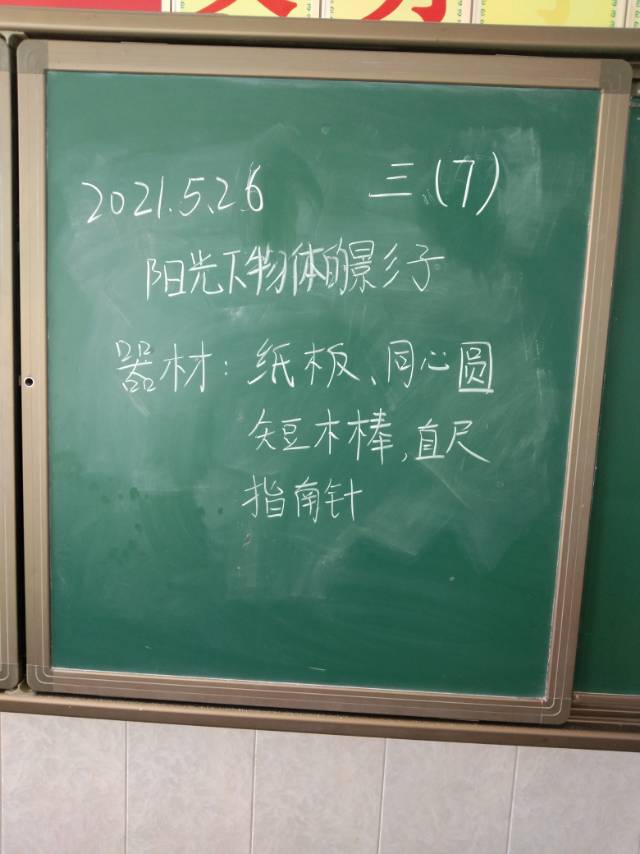 2021.5.26 三(7)
阳光下物体的影子
器材：纸板、同心圆
短木棒，直尺
指南针